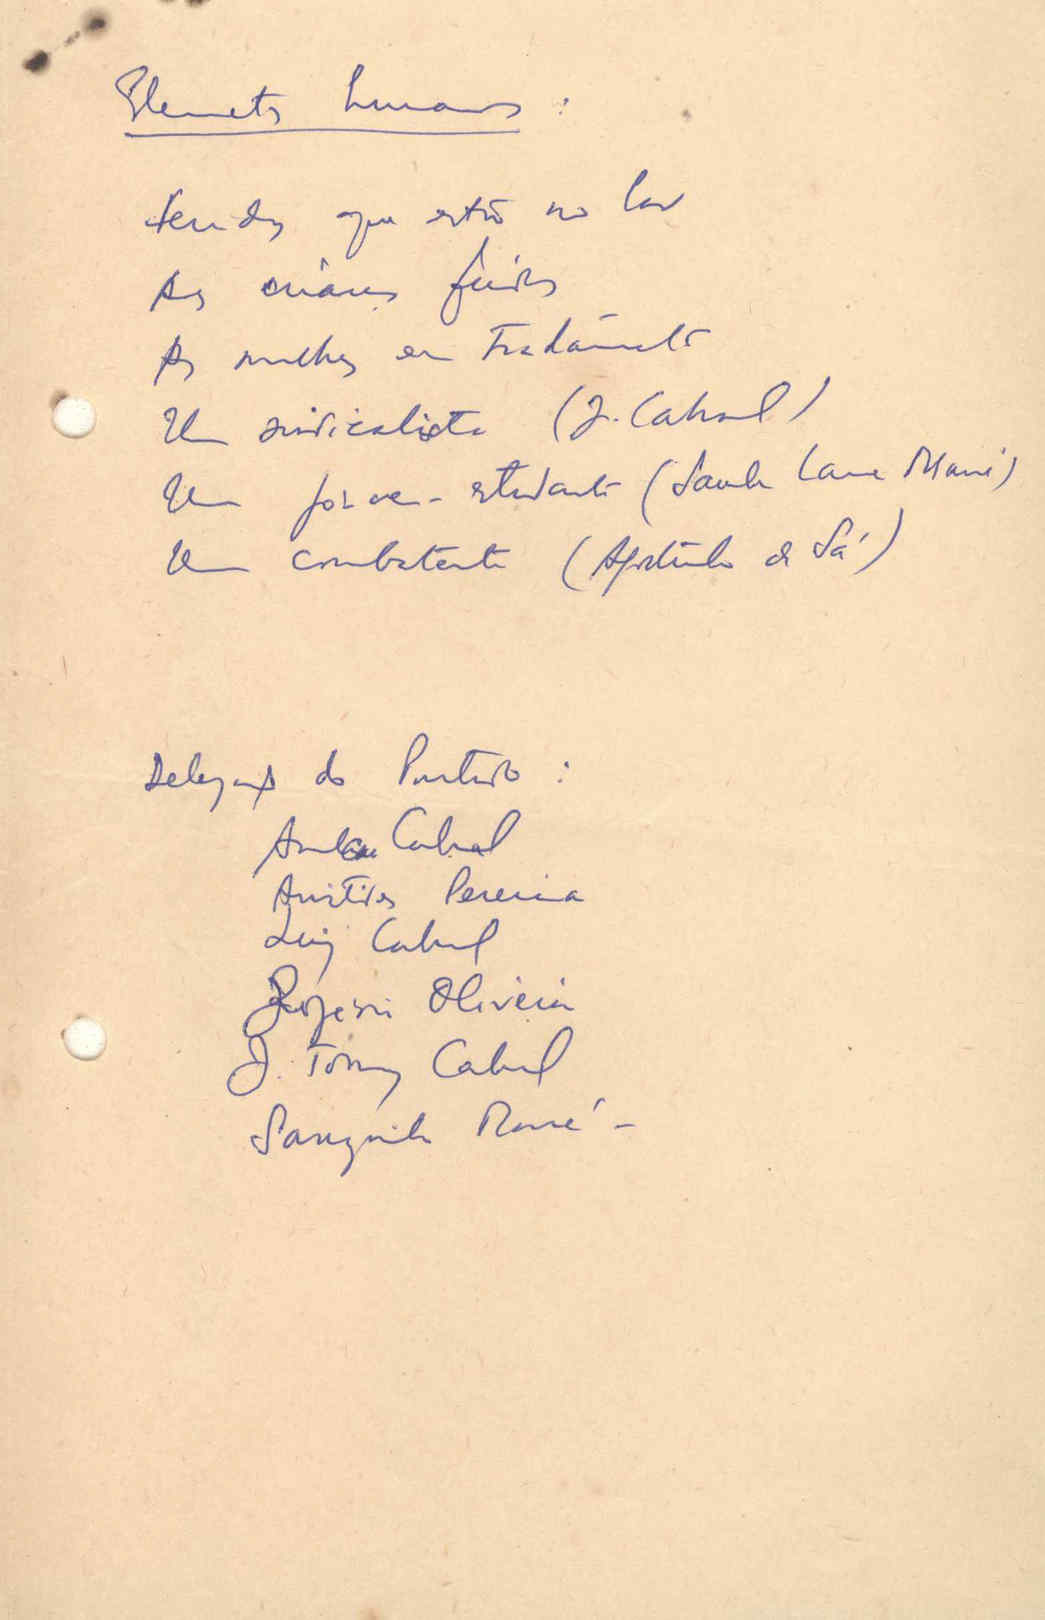 Elementos humanos :
Feridos que estão no lar
As crianças feridas
As mulheres em tratamento
Um sindicalista (J. Cabral)
Um jovem - estudante (Lana Mané)
Um combatente (Agostinho de Sá)
Delegação do Partido :
Amílcar Cabral
Aristides Pereira
Luiz Cabral
Rogério Oliveira
J. Tomaz Cabral
Mané -